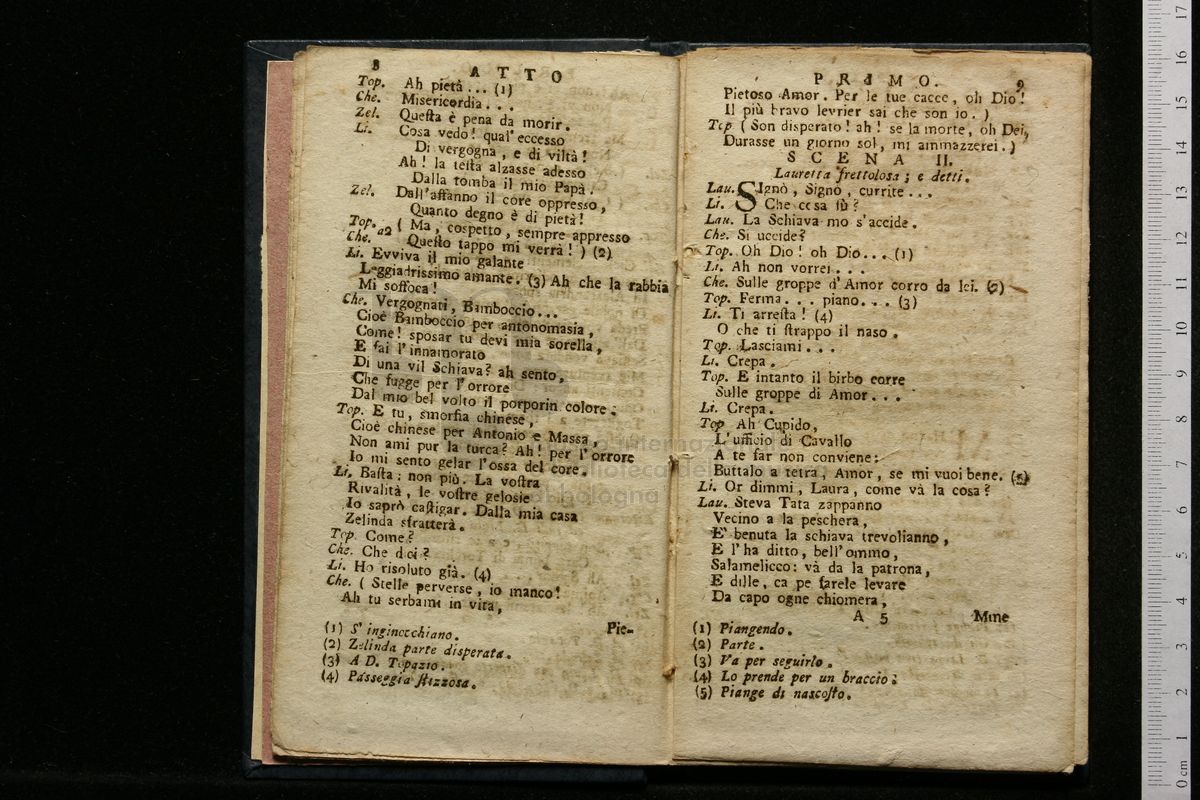 8 ATTO
Top. Ah pietà ... (1)
Che. Misericordia . . .
Zel. Queſta è pena da morir .
Li. Coſa vedo ! qual' ecceſſo
Di vergogna , e di viltà !
Ah ! la teſta alzaſſe adeſſo
Dalla tomba il mio Papà .
Zel. Dall'affanno il core oppreſſo ,
Quanto degno è di pietà !
Top. Che. a2 ( Ma , coſpetto , ſempre appreſſo
Queſto tappo mi verrà ! ) (2)
Li. Evviva il mio galante
Leggiadriſſimo amante . (3) Ah che la rabbia
Mi ſoffoca !
Che. Vergognati , Bamboccio ...
Cioè Bamboccio per antonomaſia ,
Come ! ſpoſar tu devi mia ſorella ,
E fai l'innamorato
Di una vil Schiava ? ah ſento ,
Che fugge per l'orrore
Dal mio bel volto il porporin colore .
Top. E tu , ſmorfia chineſe ,
Cioè chineſe per Antonio e Maſſa ,
Non ami pur la turca ? Ah ! per l'orrore
Io mi ſento gelar l'oſſa del core .
Li. Baſta : non più . La voſtra
Rivalità , le voſtre geloſie
Io ſaprò caſtigar . Dalla mia caſa
Zelinda sfratterà .
Top. Come ?
Che. Che dci ?
Li. Ho riſoluto già . (4)
Che. ( Stelle perverſe , io manco !
Ah tu ſerbami in vita ,
Pie-
(1) S' inginocchiano .
(2) Zelinda parte diſperata .
(3) A D. Topazio .
(4) Paſſeggia ſtizzoſa .
PRIMO. 9
Pietoſo Amor . Per le tue cacce , oh Dio !
Il più bravo levrier ſai che ſon io . )
Top ( Son diſperato ! ah ! ſe la morte , oh Dei,
Duraſſe un giorno ſol , mi ammazzerei . )
SCENA II.
Lauretta frettoloſa ; e detti .
Lau. SIgnò , Signò , currite ...
Li. Che coſa fù ?
Lau. La Schiava mo s'accide .
Che. Si uccide ?
Top. Oh Dio ! oh Dio ... (1)
Li. Ah non vorrei . . .
Che. Sulle groppe d'Amor corro da lei . (2)
Top. Ferma . . . piano . . . (3)
Li. Ti arreſta ! (4)
O che ti ſtrappo il naſo .
Top. Laſciami . . .
Li. Crepa .
Top. E intanto il birbo corre
Sulle groppe di Amor . . .
Li. Crepa .
Top Ah Cupido ,
L'ufficio di Cavallo
A te far non conviene :
Buttalo a terra , Amor , ſe mi vuoi bene . (5)
Li. Or dimmi , Laura , come và la coſa ?
Lau. Steva Tata zappanno
Vecino a la peſchera ,
E' benuta la ſchiava trevolianno ,
E l'ha ditto , bell'ommo ,
Salamelicco : và da la patrona ,
E dille , ca pe farele levare
Da capo ogne chiomera ,
A 5 Mme
(1) Piangendo .
(2) Parte .
(3) Va per ſeguirlo .
(4) Lo prende per un braccio ;
(5) Piange di naſcoſto .